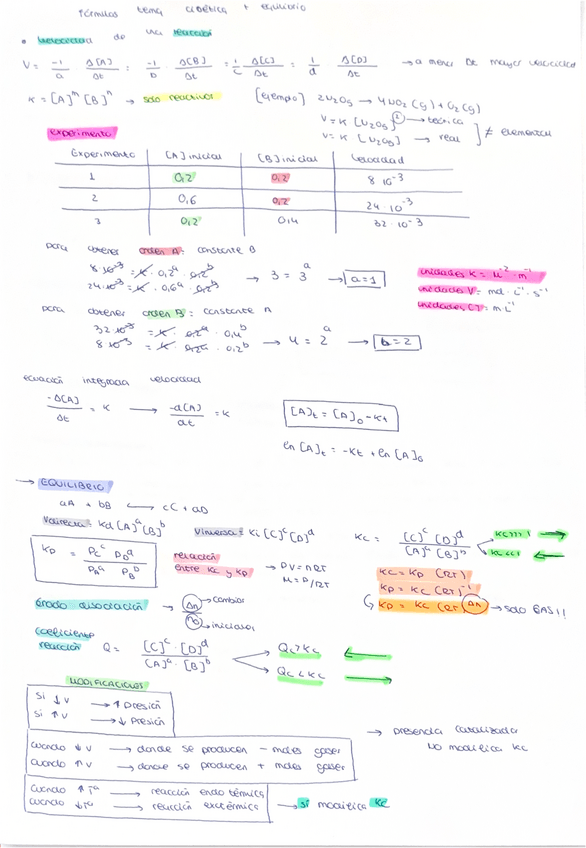 Fórmulas tema cinética + equilibrio
• Velocidad de una reacción
V = -1/a Δ[A]/Δt = -1/b Δ[B]/Δt = 1/c Δ[C]/Δt = 1/d Δ[D]/Δt → a menor Δt mayor velocidad
K = [A]^m [B]^n → solo reactivos
[ejemplo] 2N2O5 → 4NO2(g) + O2(g)
V = K [N2O5]^2 → teórica
V = K [N2O5] → real
≠ elemental
experimento
Experimento [A] inicial [B] inicial Velocidad
1 0,2 0,2 8·10^-3
2 0,6 0,2 24·10^-3
3 0,2 0,4 32·10^-3
para obtener orden A: constante B
8·10^-3 = K · 0,2^a · 0,2^b
24·10^-3 = K · 0,6^a · 0,2^b
→ 3 = 3^a → a=1
unidades K = M^-2 · m^-1
unidades V = mol · L^-1 · s^-1
unidades [ ] = m · L^-1
para obtener orden B: constante A
32·10^-3 = K · 0,2^a · 0,4^b
8·10^-3 = K · 0,2^a · 0,2^b
→ 4 = 2^a → b=2
ecuación integrada velocidad
-Δ[A]/Δt = K → -d[A]/dt = K
[A]t = [A]0 - Kt
ln [A]t = -Kt + ln [A]0
→ EQUILIBRIO
aA + bB ⟷ cC + dD
Vdirecta = Kd [A]^a [B]^b Vinversa = Ki [C]^c [D]^d
Kc = [C]^c [D]^d / [A]^a [B]^b
Kc>>>1 →
Kc<<1 ←
Kp = Pc^c PD^d / PA^a PB^b
relación entre Kc y Kp → PV = nRT
M = P/RT
Kc = Kp (RT)
Kp = Kc (RT)^-1
Kp = Kc (RT)^Δn → solo GAS!!
Grado disociación → Δn → cambios
n0 → iniciales
coeficiente reacción Q = [C]^c · [D]^d / [A]^a · [B]^b
Qc>Kc ←
Qc<Kc →
MODIFICACIONES
Si ↓ V → ↑ Presión
Si ↑ V → ↓ Presión
→ presencia catalizada
NO modifica Kc
Cuando ↓ V → donde se producen - moles gaser
Cuando ↑ V → donde se producen + moles gaser
Cuando ↑ Tª → reacción endotérmica
Cuando ↓ Tª → reacción exotérmica
→ sí modifica Kc